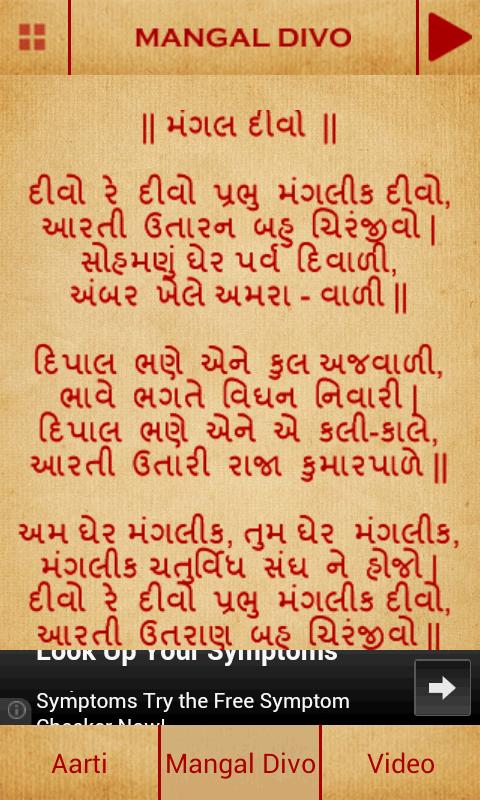 MANGAL DIVO
|| મંગલ દીવો ||
દીવો રે દીવો પ્રભુ મંગલીક દીવો,
આરતી ઉતારન બહુ ચિરંજીવો |
સોહમણું ઘેર પર્વ દિવાળી,
અંબર ખેલે અમરા - વાળી ||
દિપાલ ભણે એને કુલ અજવાળી,
ભાવે ભગતે વિધન નિવારી |
દિપાલ ભણે એને એ કલી-કાલે,
આરતી ઉતારી રાજા કુમારપાળે ||
અમ ઘેર મંગલીક, તુમ ઘેર મંગલીક,
મંગલીક ચતુર્વિધ સંઘ ને હોજો |
દીવો રે દીવો પ્રભુ મંગલીક દીવો,
આરતી ઉતરાણ બહુ ચિરંજીવો ||
Look Up Your Symptoms
Symptoms Try the Free Symptom
Checker Now!
Aarti Mangal Divo Video